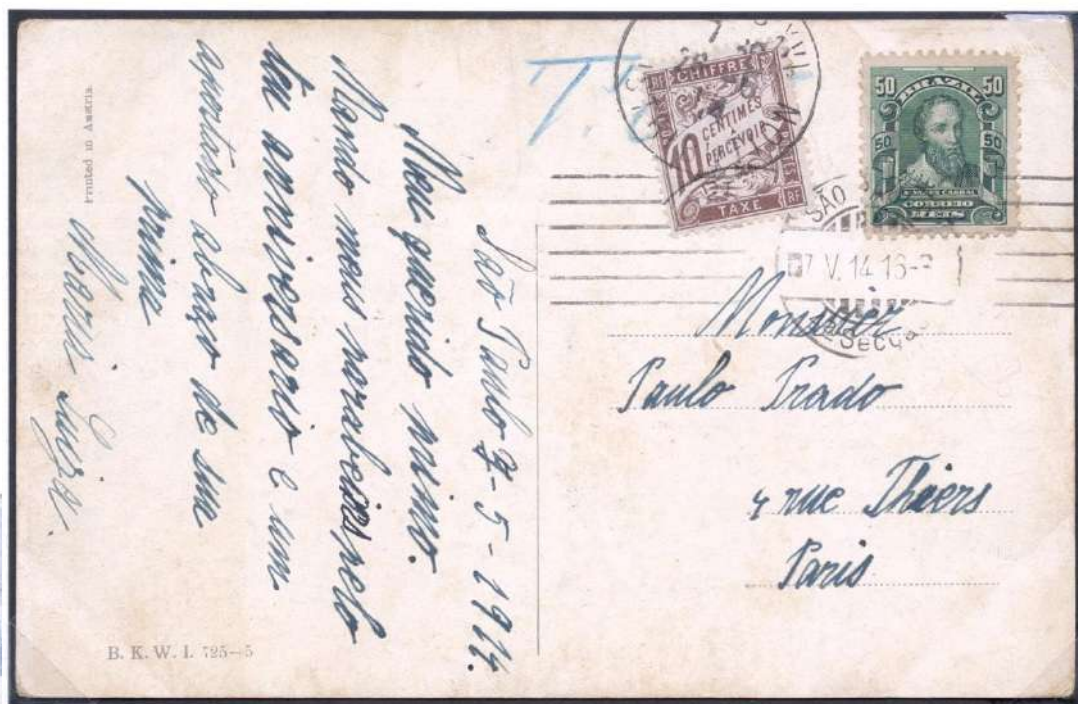 São Paulo 7-5-1914.
Meu querido primo.
Mando meus parabens pelo
teu anniversario e um
apertado abraço de sua
prima
Maria Luiza.
Printed in Austria
B. K. W. I. 725—5
T
RF CHIFFRE
10 CENTIMES
À
PERCEVOIR
TAXE RF
50 BRAZIL 50
50 50
CORREIO
REIS
SÃO
7 V. 14 16-
Secção
Monsieur
Paulo Prado
4 rue Thiers
Paris